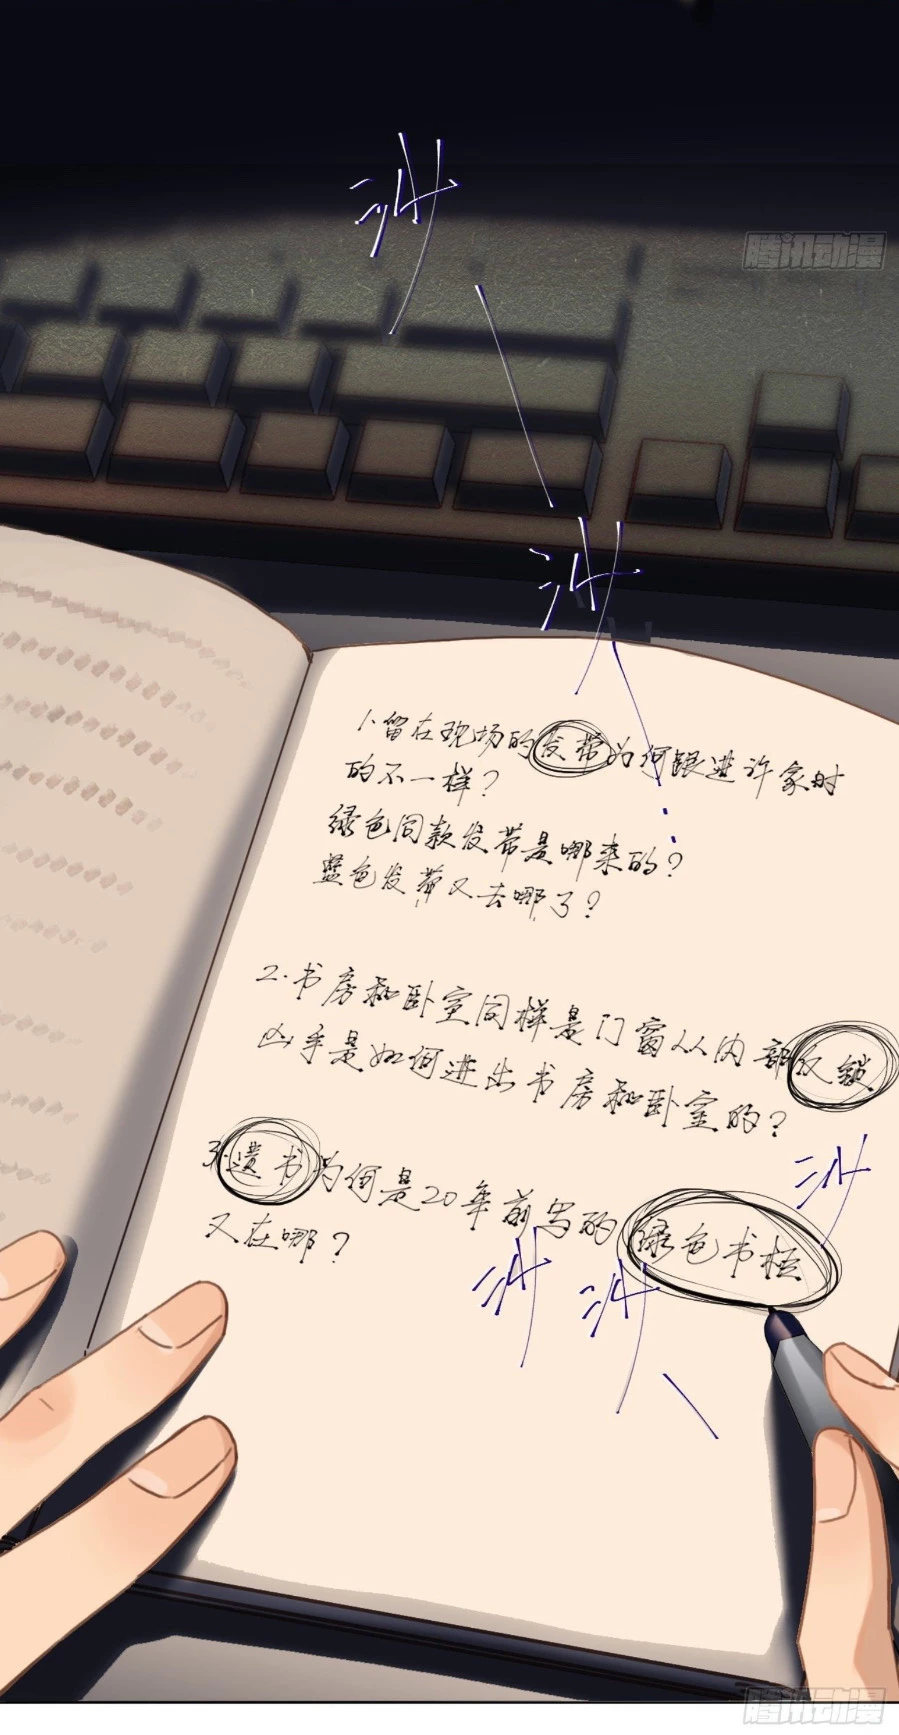 腾讯动漫
沙
沙
1.留在现场的发带为何跟进许家时
的不一样？
绿色同款发带是哪来的？
蓝色发带又去哪了？
2.书房和卧室同样是门窗从内部反锁
凶手是如何进出书房和卧室的？
3.遗书为何是20年前写的绿色书柜
又在哪？
沙
沙
沙
腾讯动漫